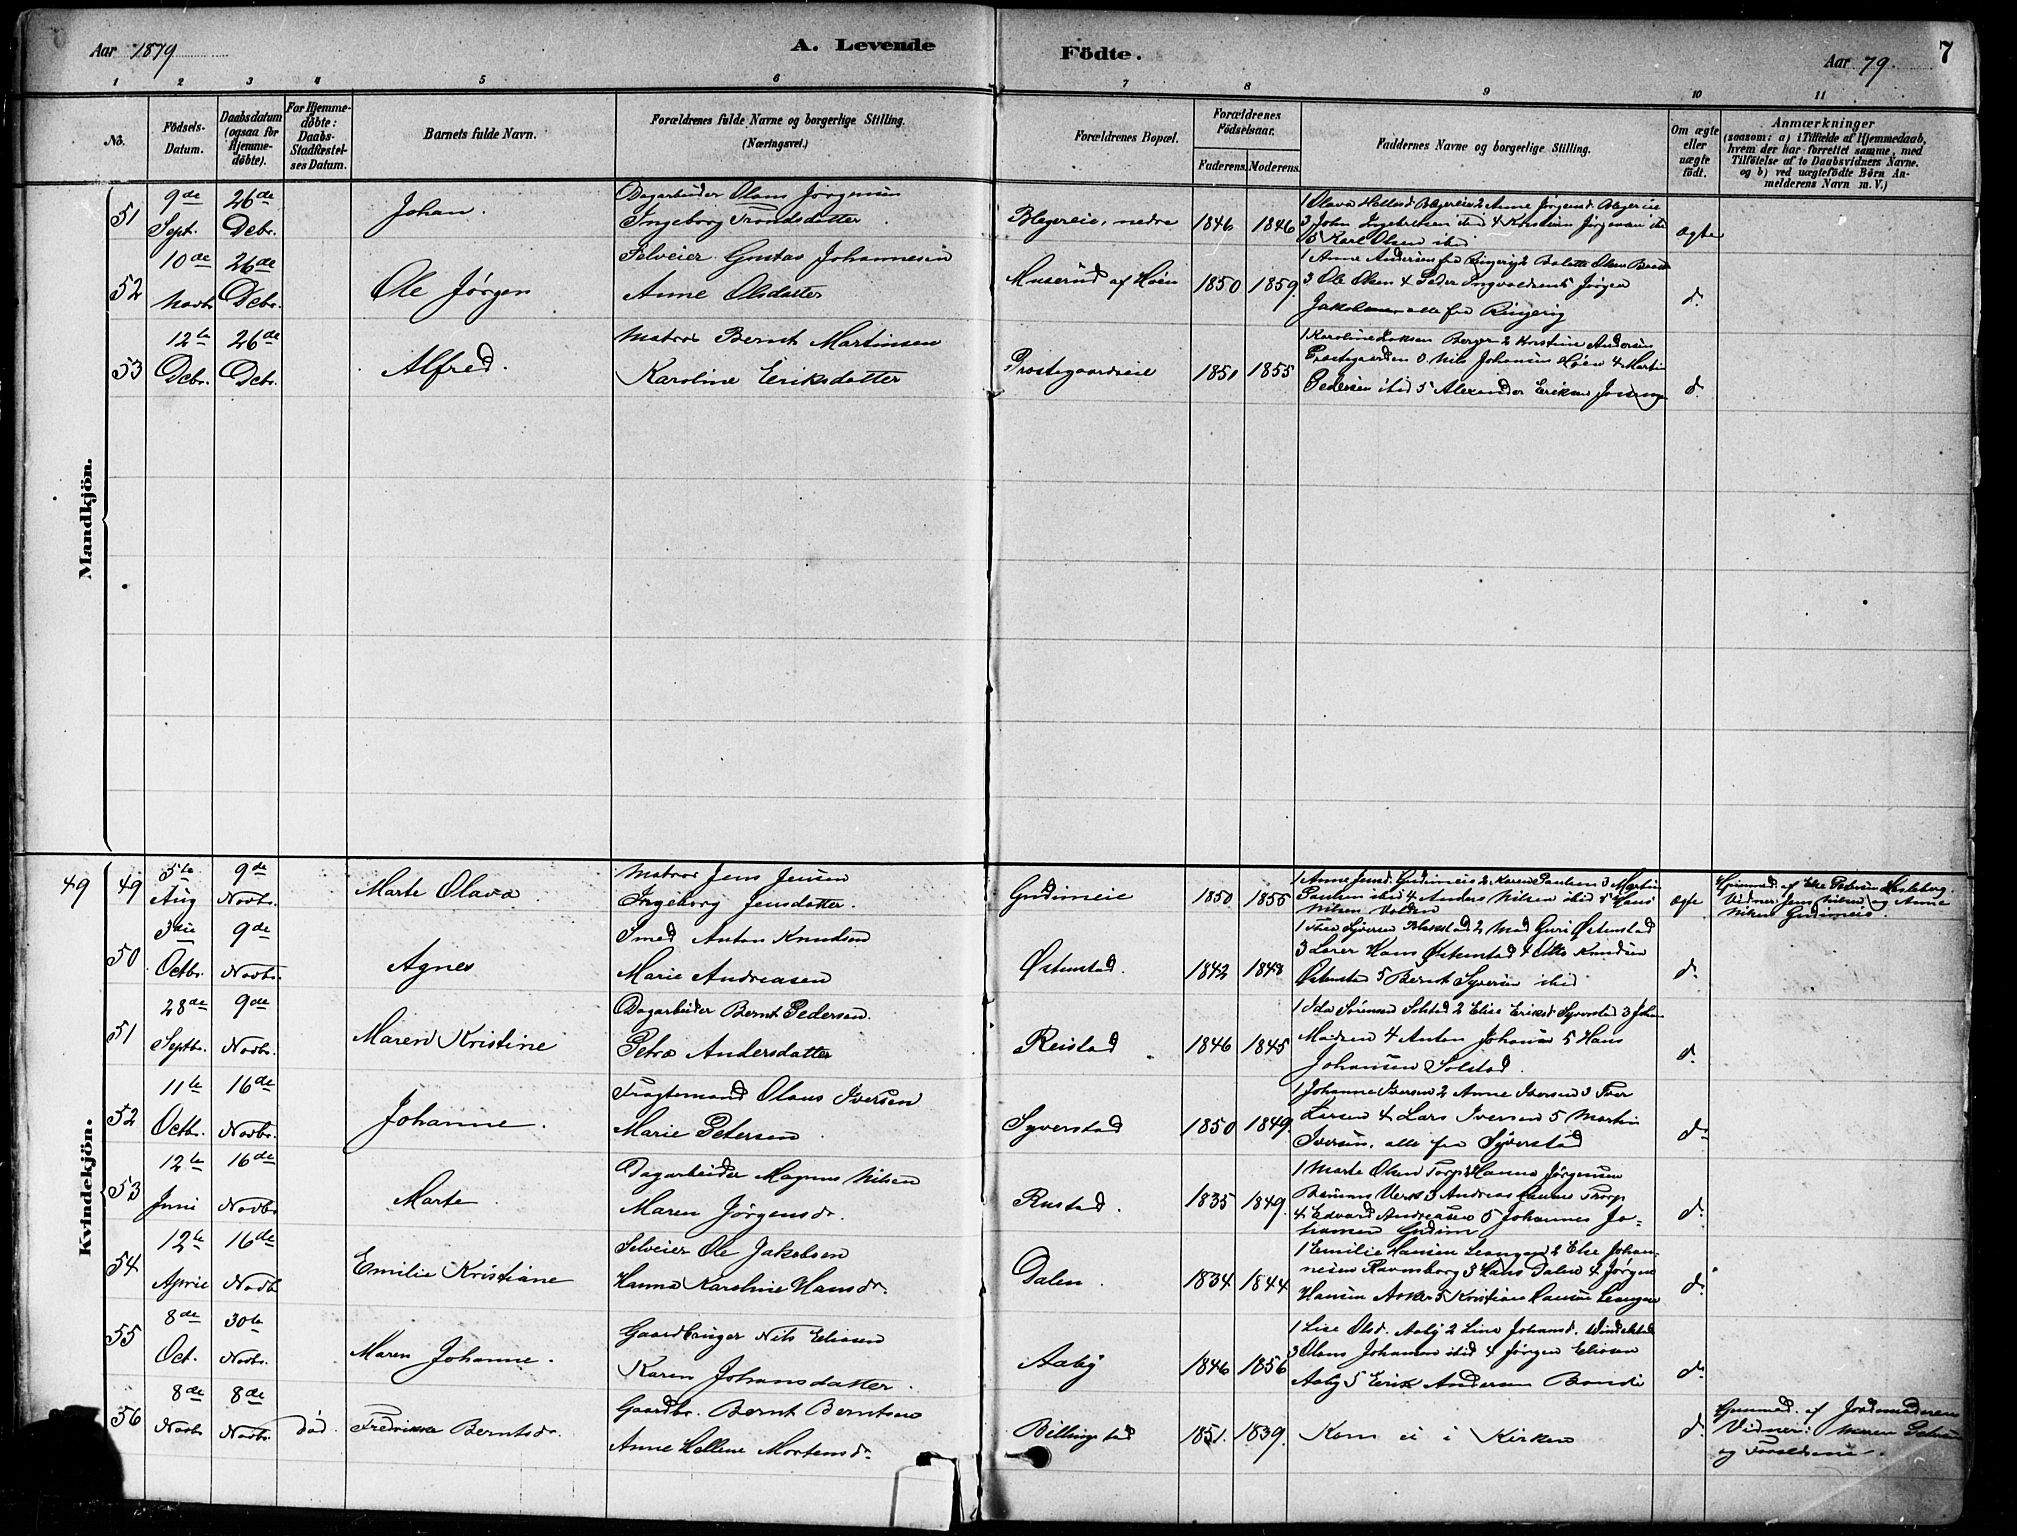 Aar 1879
A. Levende
Födte.
Aar 79.
7
1 2 3 4 5 6 7 8 9 10 11
No.
Födsels-Datum.
Daabsdatum (ogsaa för Hjemme-döbte).
For Hjemme-döbte: Daabs-Stadfæstel-ses Datum.
Barnets fulde Navn.
Forældrenes fulde Navne og borgerlige Stilling.
(Næringsvei.)
Forældrenes Bopæl.
Forældrenes Födselsaar.
Faderens. Moderens.
Faddernes Navne og borgerlige Stilling.
Om ægte eller uægte födt.
Anmærkninger
(saasom: a) i Tilfælde af Hjemmedaab,
hvem der har forrettet samme, med
Tilföielse af to Daabsvidners Navne.
og b) ved uægtefödte Börn An-
melderens Navn m. V.)
Mandkjön.
51 9de Sept. 26de Debr. Johan.
Dagarbeider Olaus Jørgensen
Ingeborg Trondsdatter
nedre 1846 1846
3 John Ingebretsen ibid 4 Kristian Jørgensen ibd
5 Karl Olsen ibid
ægte
52 10de Novbr. 26de Debr. Ole Jørgen
Selveier Gustav Johannesen
Anne Olsdatter
Muserud af Høin 1850 1859.
1 Anne Andersen fra Ringerig 2 Bolette Olsen
3 Ole Olsen 4 Peder Ingvoldsen 5 Jørgen
Jakobsen alle fra Ringerig
d.
53 12te Debr. 26de Debr. Alfred.
Matros Bernt Martinsen
Karoline Eriksdatter
Prostegaardseie 1851 1855
1 Karoline Berger 2 Kristine Andersen
Prostegaarden 3 Nils Johansen Høin 4 Martin
Pedersen ibid 5 Alexander Eriksen
d.
Kvindekjön.
49 49 5te Aug 9de Novbr. Marte Olava
Matros Jens Jensen
Ingeborg Jensdatter.
Gudimeie 1850 1855
1 Anne Jensd. Gudimeie 2 Karen Paulsen 3 Martin
Paulsen ibid 4 Anders Nilsen ibid 5 Hans
Nilsen Volden
ægte
Hjemmed. af Else Petersen Hesleberg.
Vidner: Jens Nilsen og Anne
Nilsen Gudimeie.
50 3die Octbr. 9de Novbr. Agnes
Smed Anton Knudsen
Marie Andreasen
Østenstad. 1842 1848
1 Thea Syversen Blakstad 2 Mad Guri Østenstad
3 Lærer Hans Østenstad 4 Otto Knudsen
Østenstad 5 Bernt Syversen ibid
d.
51 28de Septbr. 9de Novbr. Maren Kristine
Dagarbeider Bernt Pedersen.
Petra Andersdatter
Reistad 1846 1845
1 Ida Sørensen Solstad 2 Elise Eriksd. Syverstad 3 Johan
Madsen 4 Anton Johansen 5 Hans
Johansen Solstad.
d.
52 11te Octbr. 16de Novbr. Johanne.
Fragtemand Olaus Iversen
Marie Petersen
Syverstad 1850 1849.
1 Johanne Iversen 2 Anne Iversen 3 Iver
Larsen 4 Lars Iversen 5 Martin
Iversen. alle fra Syverstad
d.
53 12te Juni 16de Novbr Marte
Dagarbeider Magnus Nilsen
Maren Jørgensdr.
Rustad. 1835 1849.
1 Marte Olsen Torp 2 Hanna Jørgensen
Bærums Værk 3 Andreas Hansen Torp
4 Edvard Andreasen 5 Johannes Jo-
hansen Gudim
d.
54 12te April 16de Novb Emilie Kristiane
Selveier Ole Jakobsen
Hanna Karoline Hansdr.
Dalen. 1834 1844
1 Emilie Hansen Leangen 2 Else Johan-
nesen Ravnsborg 3 Hans Dalen 4 Jørgen
Hansen Asker 5 Kristian Hansen Leangen
d.
55 8de Oct. 30te Novbr. Maren Johanne.
Gaardbruger Nils Eliasen
Karen Johansdatter.
Aaby 1846 1856
1 Lise Olsd. Aaby 2 Line Johansd.
3 Olaus Johansen ibid 4 Jørgen Eliasen
Aaby 5 Erik Andersen Bondi
d.
56 8de Novbr 8de Novbr. død. Fredrikka Berntsdr.
Gaardbr. Bernt Berntsen
Anne Hellene Mortensdr.
Billingstad 1851. 1839.
Kom ei i Kirken
d.
Hjemmed. af Jordmoderen
Vidner: Maren
og Forældrene.